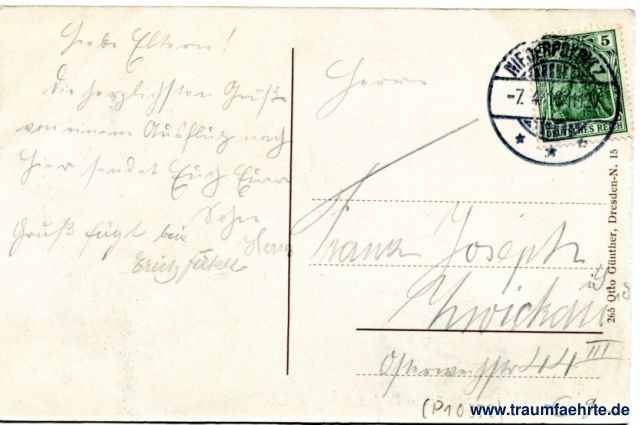 Liebe Eltern!
Die herzlichsten Grüße
von einem Ausflug nach
hier sendet Euch Euer
Sohn
Hans
Gruß fügt bei
Erich
Herrn
Franz Joseph
Zwickau i/S
III
44
NIEDERPOYRITZ
-7. 4.
5
DEUTSCHES REICH
265 Otto Günther, Dresden-N. 15
www.traumfaehrte.de